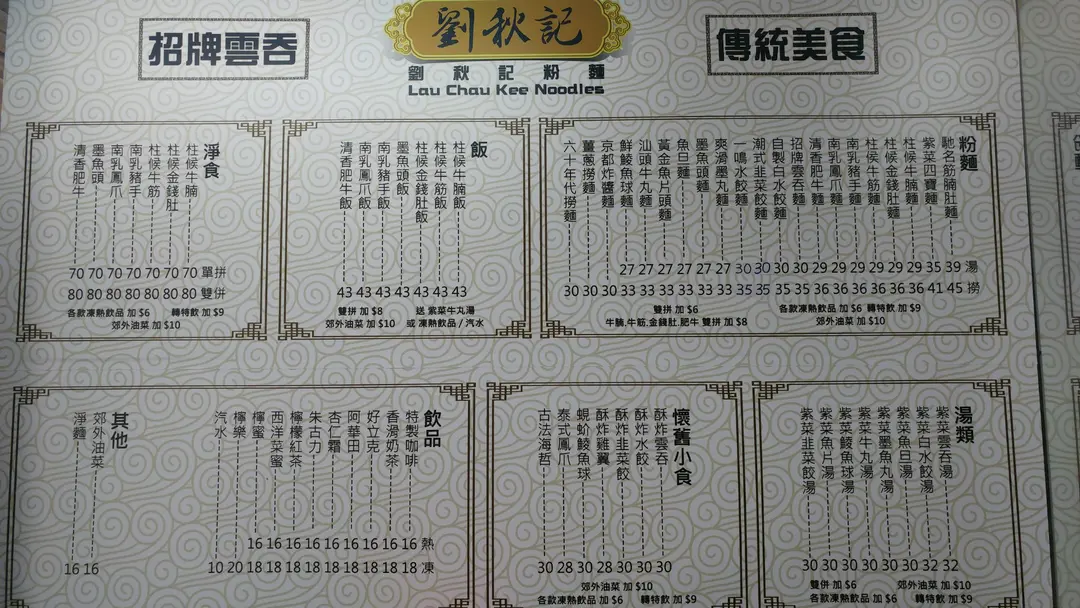 招牌雲吞
劉秋記
劉秋記粉麵
Lau Chau Kee Noodles
傳統美食
粉麵
馳名筋腩肚麵 39 45
紫菜四寶麵 35 41
柱候牛腩麵 29 36
柱候金錢肚麵 29 36
柱候牛筋麵 29 36
南乳豬手麵 29 36
南乳鳳爪麵 29 36
清香肥牛麵 29 36
招牌雲吞麵 30 35
自製白水餃麵 30 35
潮式韭菜餃麵 30 35
一鳴水餃麵 30 35
爽滑墨丸麵 27 33
墨魚頭麵 27 33
魚旦麵 27 33
黃金魚片頭麵 27 33
汕頭牛丸麵 27 33
鮮鯪魚球麵 27 33
京都炸醬麵 30
薑蔥撈麵 30
六十年代撈麵 30
湯
撈
雙拼 加 $6
各款凍熱飲品 加 $6 轉特飲 加 $9
牛腩.牛筋.金錢肚.肥牛 雙拼 加 $8
郊外油菜 加 $10
飯
柱候牛腩飯 43
柱候牛筋飯 43
柱候金錢肚飯 43
墨魚頭飯 43
南乳豬手飯 43
南乳鳳爪飯 43
清香肥牛飯 43
雙拼 加 $8 送 紫菜牛丸湯
郊外油菜 加 $10 或 凍熱飲品 / 汽水
淨食
柱候牛腩 70 80
柱候金錢肚 70 80
柱候牛筋 70 80
南乳豬手 70 80
南乳鳳爪 70 80
墨魚頭 70 80
清香肥牛 70 80
單拼
雙併
各款凍熱飲品 加 $6 轉特飲 加 $9
郊外油菜 加 $10
湯類
紫菜雲吞湯 32
紫菜白水餃湯 32
紫菜魚旦湯 30
紫菜墨魚丸湯 30
紫菜牛丸湯 30
紫菜鯪魚球湯 30
紫菜魚片湯 30
紫菜韭菜餃湯 30
雙併 加 $6 郊外油菜 加 $10
各款凍熱飲品 加 $6 轉特飲 加 $9
懷舊小食
酥炸雲吞 30
酥炸水餃 30
酥炸韭菜餃 30
酥炸雞翼 28
蜆蚧鯪魚球 30
泰式鳳爪 28
古法海哲 30
郊外油菜 加 $10
各款凍熱飲品 加 $6 轉特飲 加 $9
飲品
特製咖啡 16 18
香滑奶茶 16 18
好立克 16 18
阿華田 16 18
杏仁霜 16 18
朱古力 16 18
檸檬紅茶 16 18
西洋菜蜜 16 18
檸蜜 16 18
檸樂 20
汽水 10
熱
凍
其他
郊外油菜 16
淨麵 16